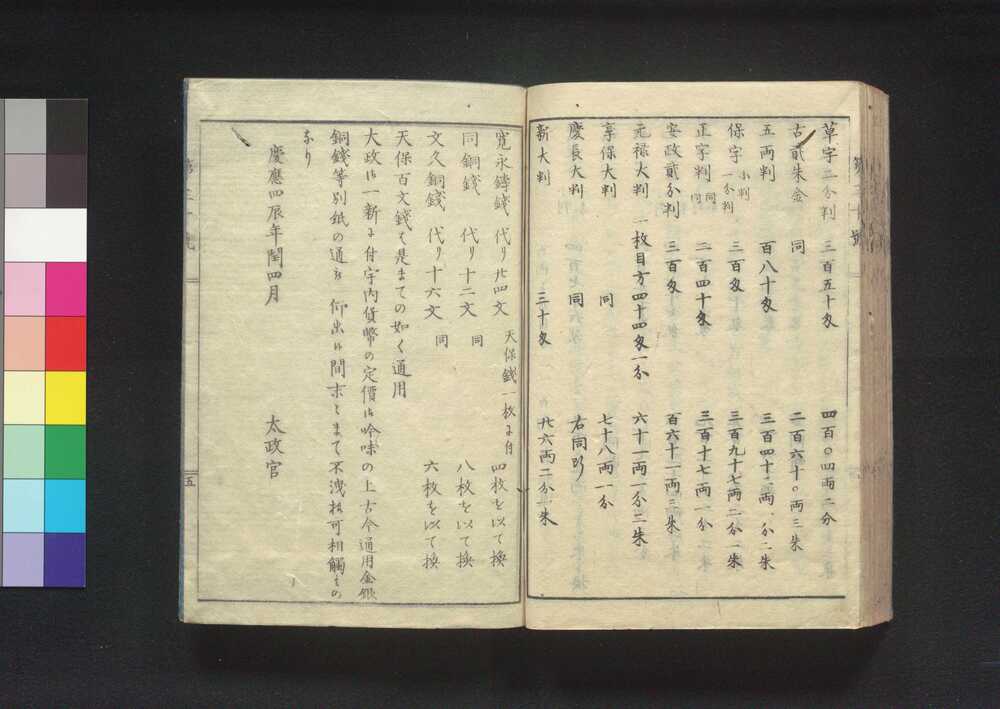 草字二分判 三百五十匁 四百〇四両二分
古貳朱金 同 二百六十〇両三朱
五両判 百八十匁 三百四十二両一分二朱
保字 小判 一分判 三百匁 三百九十七両二分一朱
正字判 同 同 二百四十匁 三百十七両一分
安政貳分判 三百匁 百六十一両三朱
元禄大判 一枚目方四十四匁一分 六十一両一分二朱
享保大判 同 七十八両一分
慶長大判 同 右同断
新大判 三十匁 廿六両二分一朱
寛永鋳錢 代リ廿四文 天保錢一枚ニ付 四枚を以て換
同銅錢 代リ十二文 同 八枚を以て換
文久銅錢 代リ十六文 同 六枚を以て換
天保百文錢ハ是まての如く通用
大政御一新ニ付宇内貨幣の定價御吟味の上古今通用金銀
銅錢等別紙の通被 仰出候間末々まて不洩様可相觸もの
なり
慶應四辰年閏四月 太政官
五